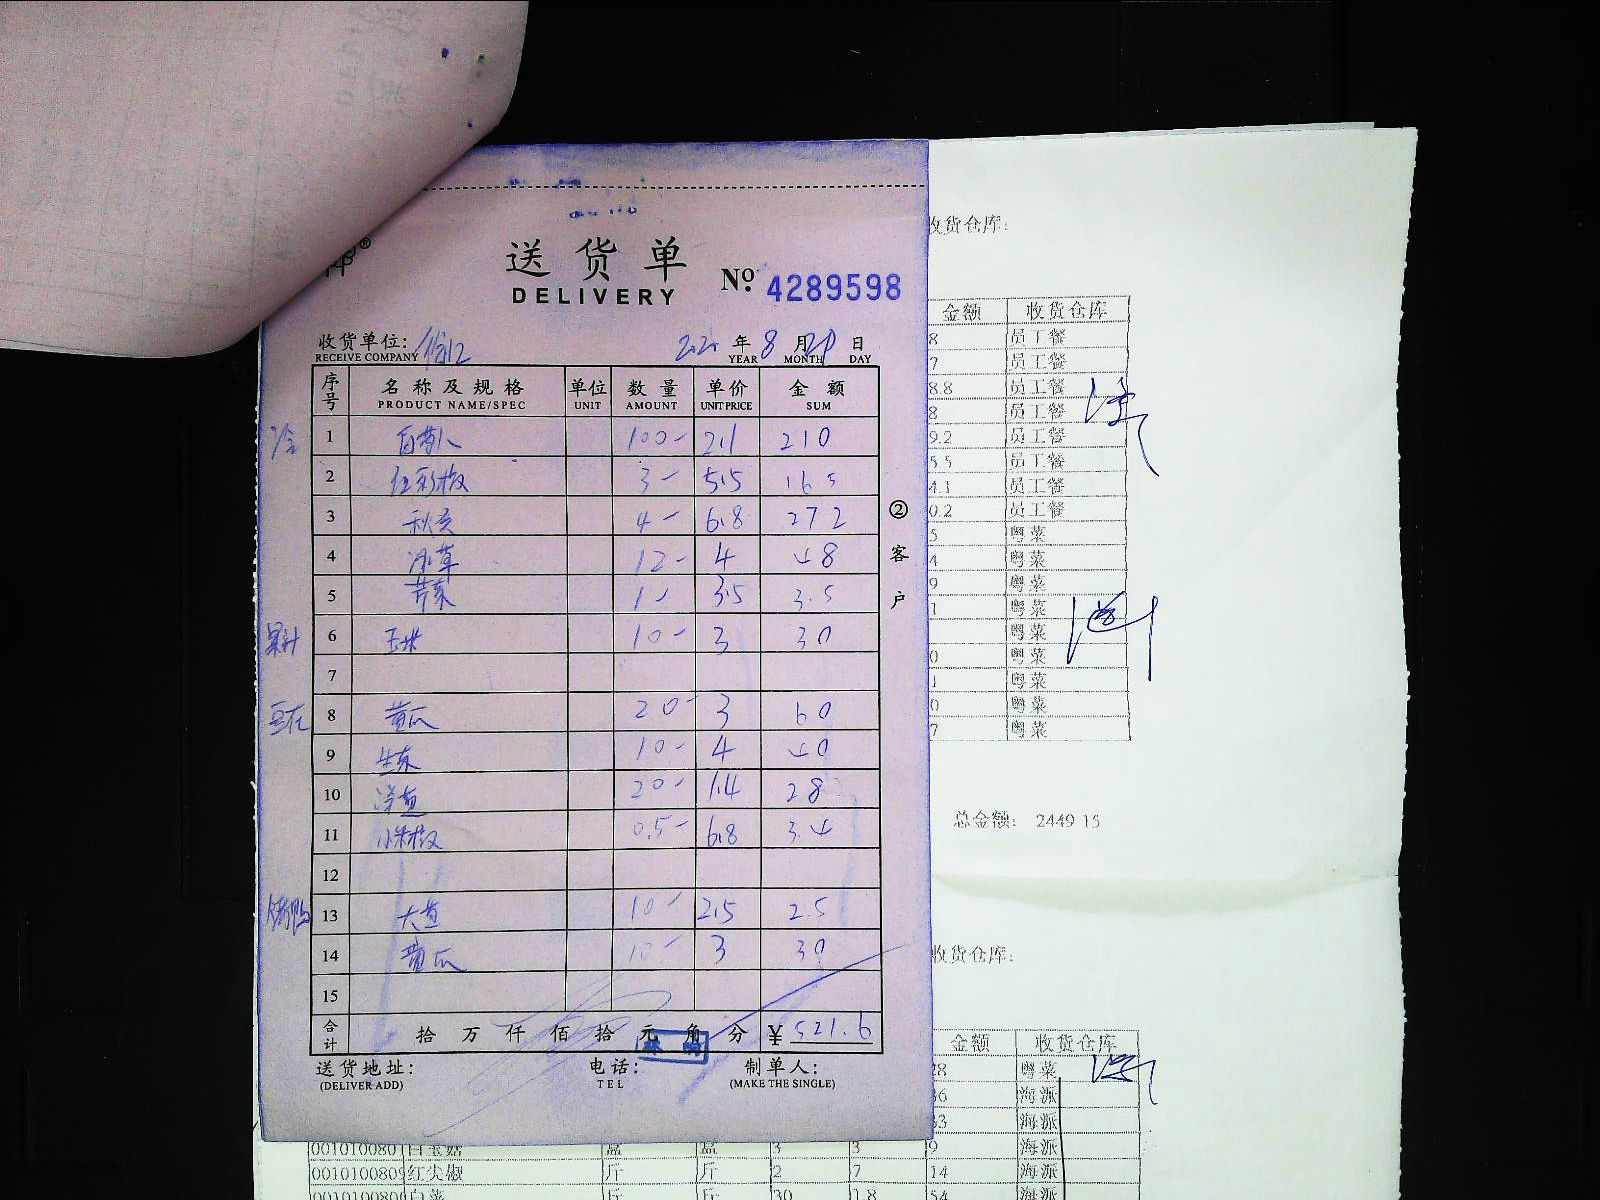 送货单
DELIVERY
№ 4289598
收货单位:
RECEIVE COMPANY
年 8 月 日
YEAR MONTH DAY
序号 名称及规格 单位 数量 单价 金额
PRODUCT NAME/SPEC UNIT AMOUNT UNIT PRICE SUM
1 100- 2.1 210
2 红彩椒 3- 5.5 16.5
3 秋黄 4- 6.8 272
4 12- 4 48
5 芹菜 1- 3.5 3.5
果汁 6 玉米 10- 3 30
7
8 黄瓜 20- 3 60
9 生菜 10- 4 40
10 20- 1.4 28
11 小米椒 0.5- 6.8 3.4
12
烤鸭 13 10- 2.5 2.5
14 黄瓜 10- 3 30
15
合计 拾万仟佰拾元角分 ¥ 521.6
送货地址: 电话: 制单人:
(DELIVER ADD) TEL (MAKE THE SINGLE)
②客户
收货仓库:
金额 收货仓库
8 员工餐
7 员工餐
8.8 员工餐
8 员工餐
9.2 员工餐
5.5 员工餐
4.1 员工餐
0.2 员工餐
5 粤菜
4 粤菜
9 粤菜
1 粤菜
粤菜
0 粤菜
1 粤菜
0 粤菜
7 粤菜
总金额: 2449.15
收货仓库:
金额 收货仓库
28 粤菜
36 海派
33 海派
0010100801 白玉菇 盒 盒 3 3 9 海派
001010080 红尖椒 斤 斤 2 7 14 海派
001010080 白菜 斤 斤 30 1.8 54 海派